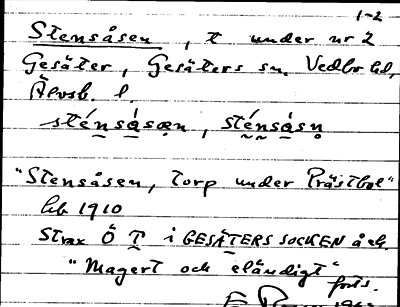 1-2
Stensåsen, t under nr 2
Gesäter, Gesäters sn. Vedbo hd,
Älvsb. l.
sténsåsæn, sténsåsn
"Stensåsen, torp under Prästbol"
hb 1910
Strax Ö T i GESÄTERS SOCKEN å ek.
"Magert och eländigt"
forts.